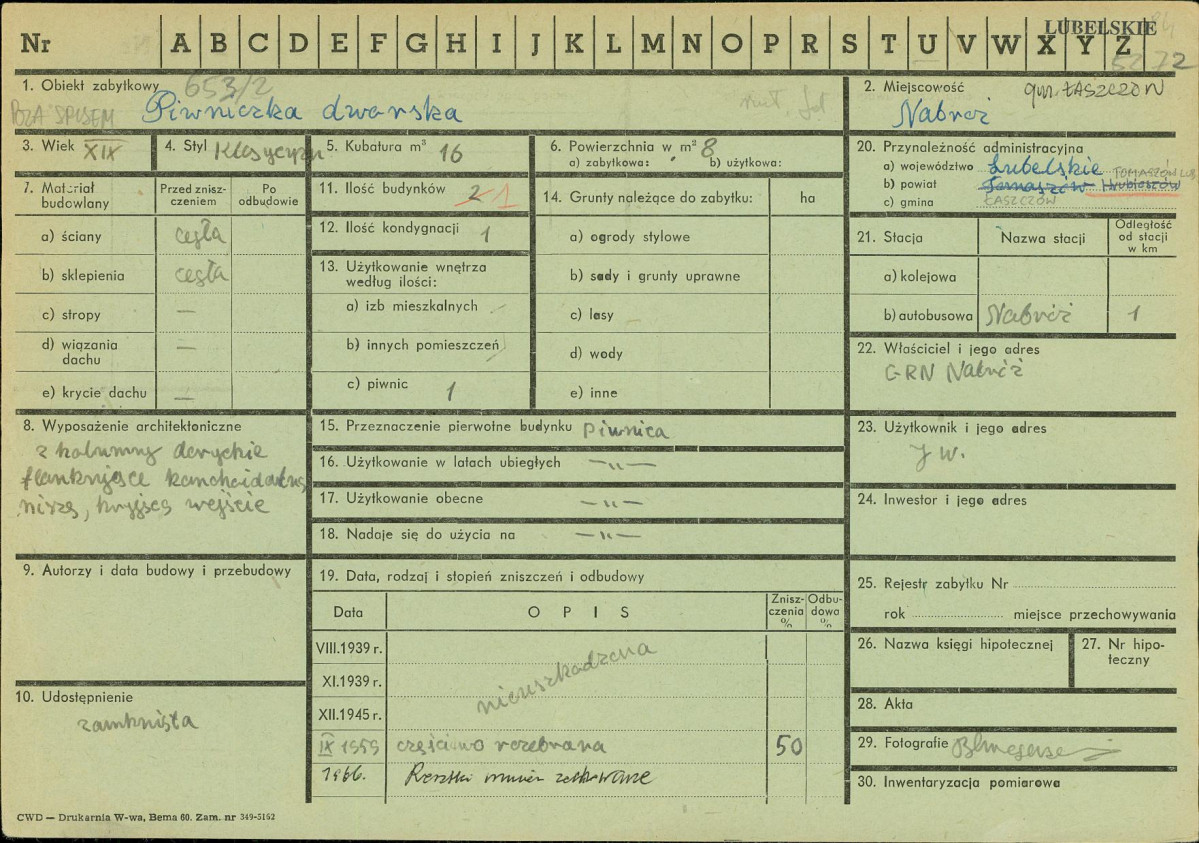 LUBELSKIE
Nr A B C D E F G H I J K L M N O P R S T U V W X Y Z
72
1. Obiekt zabytkowy 653/2
POZA SPISEM Piwniczka dworska
2. Miejscowość gm. ŁASZCZÓW
Nabróż
3. Wiek XIX
4. Styl Klasycyzm
5. Kubatura m³ 16
6. Powierzchnia w m² 8
a) zabytkowa: b) użytkowa:
20. Przynależność administracyjna
a) województwo Lubelskie TOMASZÓW LUB.
b) powiat Tomaszów Hrubieszów
c) gmina ŁASZCZÓW
7. Materiał budowlany
Przed znisz-
czeniem
Po
odbudowie
a) ściany cegła
b) sklepienia cegła
c) stropy —
d) wiązania
dachu —
e) krycie dachu —
11. Ilość budynków 2 1
12. Ilość kondygnacji 1
13. Użytkowanie wnętrza
według ilości:
a) izb mieszkalnych
b) innych pomieszczeń
c) piwnic 1
14. Grunty należące do zabytku: ha
a) ogrody stylowe
b) sady i grunty uprawne
c) lasy
d) wody
e) inne
21. Stacja Nazwa stacji
Odległość
od stacji
w km
a) kolejowa
b) autobusowa Nabróż 1
22. Właściciel i jego adres
GRN Nabróż
8. Wyposażenie architektoniczne
2 kolumny doryckie
flankujące konchoidalną
niszę, kryjącą wejście
15. Przeznaczenie pierwotne budynku piwnica
16. Użytkowanie w latach ubiegłych —„—
17. Użytkowanie obecne —„—
18. Nadaje się do użycia na —„—
23. Użytkownik i jego adres
J w.
24. Inwestor i jego adres
9. Autorzy i data budowy i przebudowy
19. Data, rodzaj i stopień zniszczeń i odbudowy
Data OPIS
Znisz-
czenia
%
Odbu-
dowa
%
VIII.1939 r.
XI.1939 r. nieuszkodzona
XII.1945 r.
IX 1959 częściowo rozebrana 50
1966. Resztki murów
25. Rejestr zabytku Nr
rok miejsce przechowywania
26. Nazwa księgi hipotecznej
27. Nr hipo-
teczny
10. Udostępnienie
zamknięta
28. Akta
29. Fotografie
30. Inwentaryzacja pomiarowa
CWD — Drukarnia W-wa, Bema 60. Zam. nr 349-5162